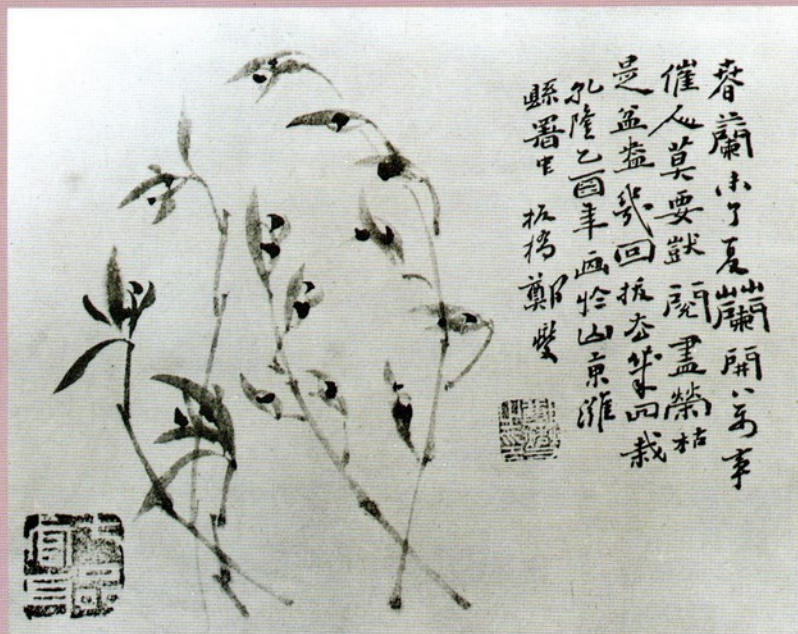 春蘭未了夏蘭開萬事
催人莫要獃閱盡榮枯
是盆盎幾回拔去幾回栽
乾隆乙酉年画於山東濰
縣署中 板橋鄭燮